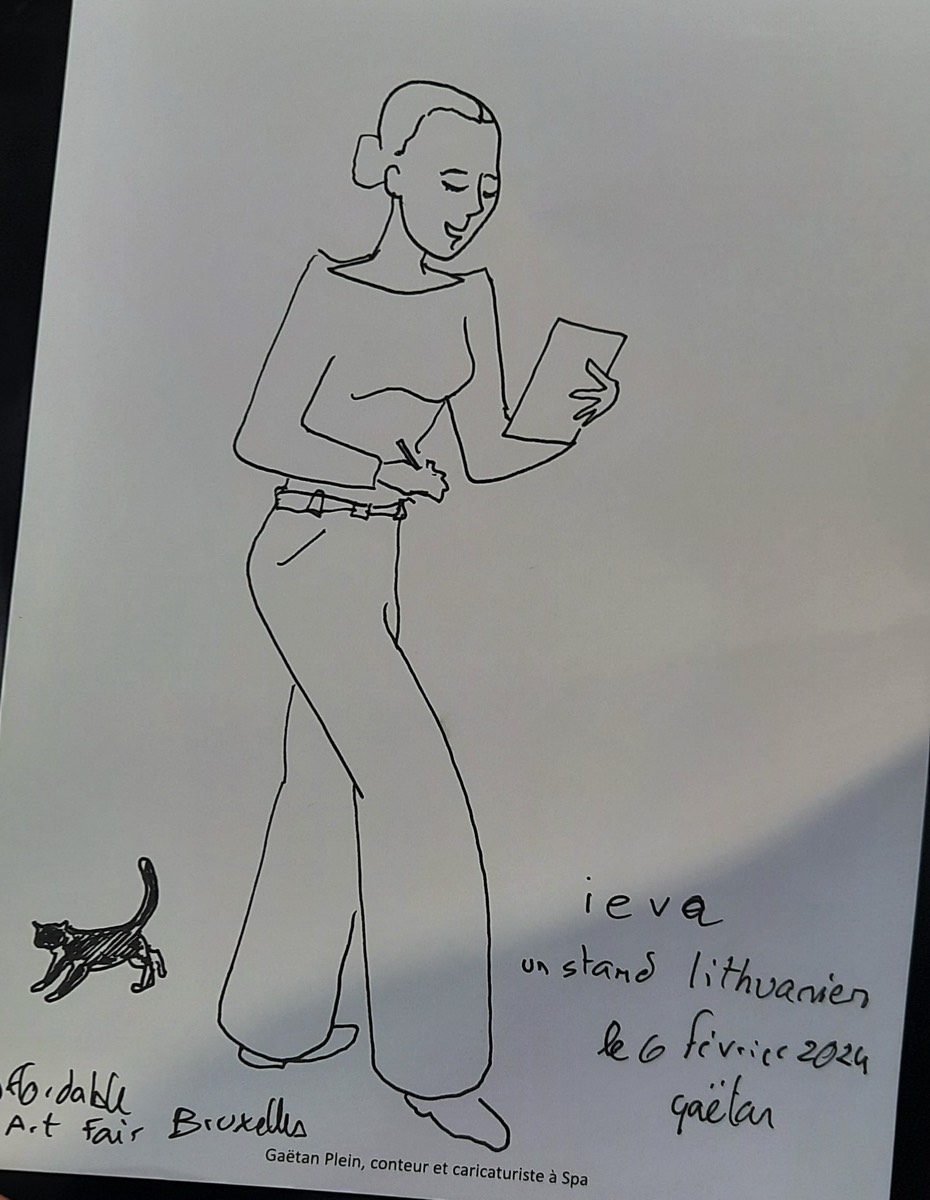 ieva
un stand lithuanien
le 6 février 2024
gaëtan
Affordable
Art Fair Bruxelles
Gaëtan Plein, conteur et caricaturiste à Spa